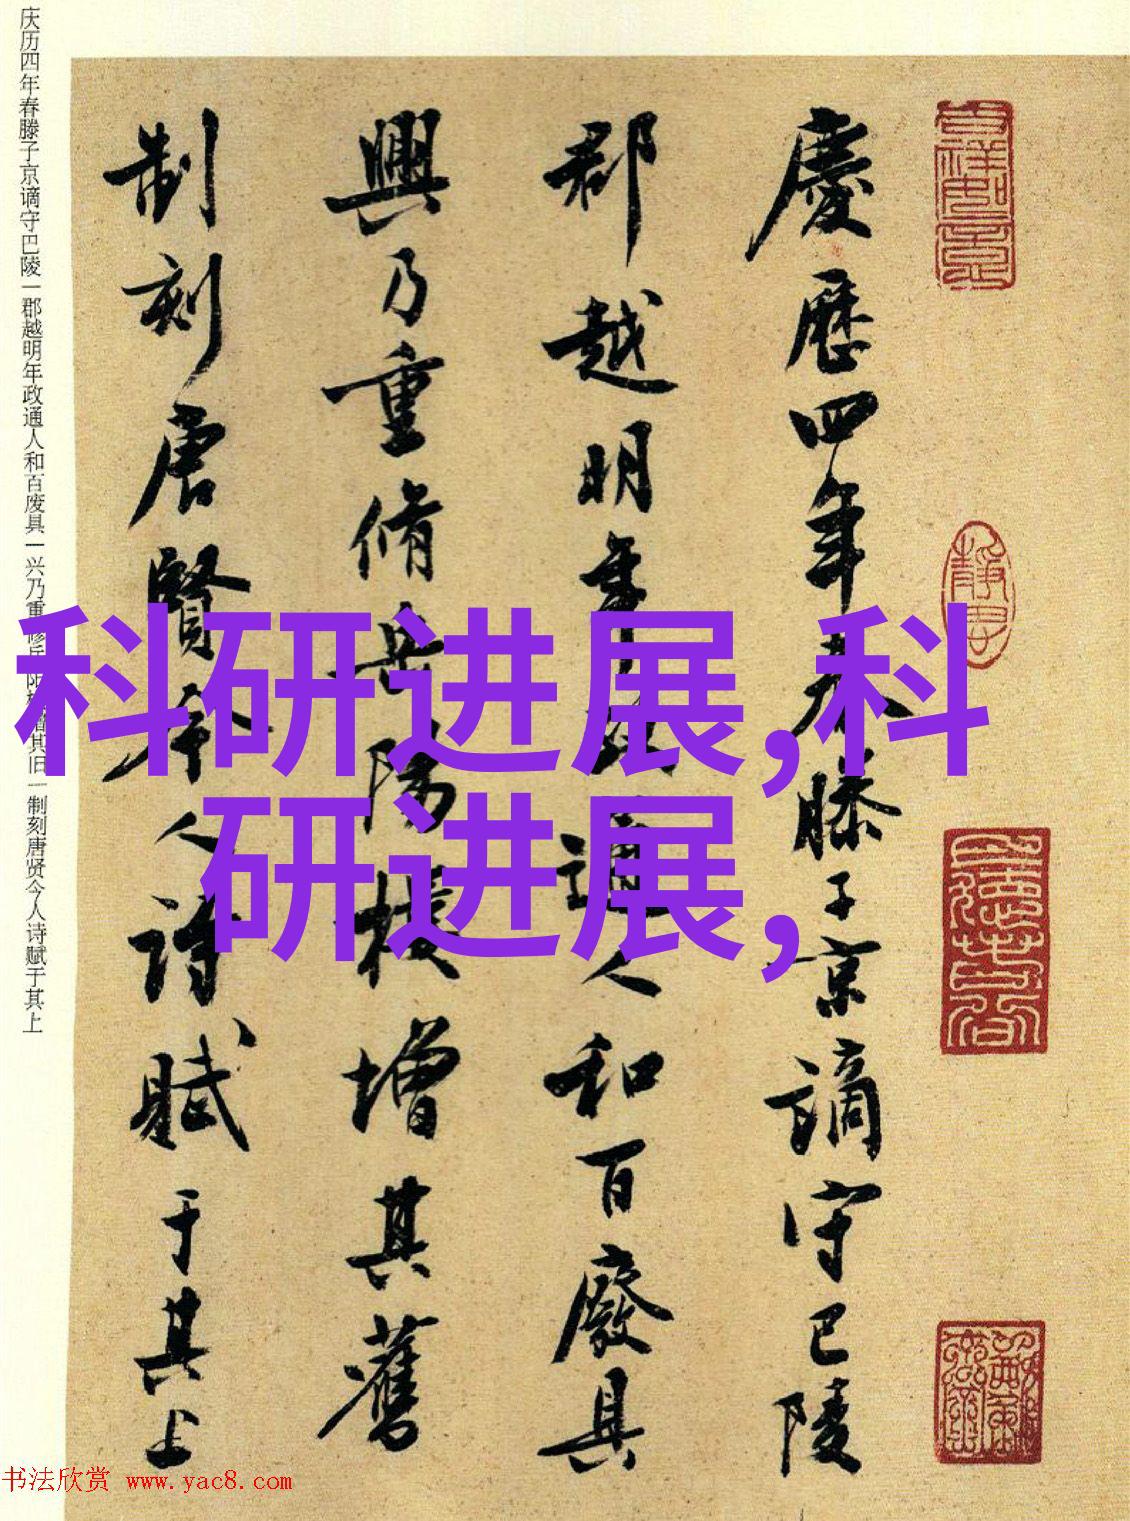 庆历四年春滕子京谪守巴陵一郡越明年政通人和百废具一兴乃重修岳阳楼增其旧一制刻唐贤今人诗赋于其上
慶歷四年春滕子京謫守巴陵
郡越明年政通人和百廢具
興乃重脩岳陽樓增其舊
制刻唐賢今人詩賦于其上
科研进展,科
研进展,
书法欣赏 www.yac8.com